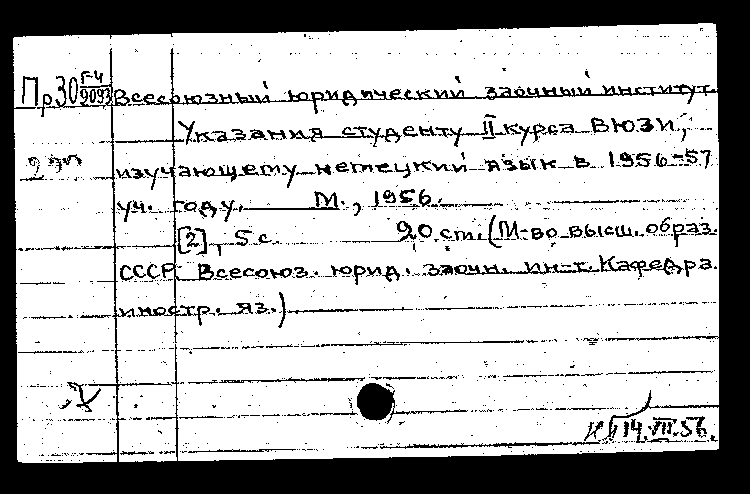 Пр30 Г-4/9093 Всесоюзный юридический заочный институт.
Указания студенту II курса ВЮЗИ,
изучающему немецкий язык в 1956-57
уч. году. М., 1956.
[2], 5 с. 20 см. (М-во высш. образ.
СССР. Всесоюз. юрид. заочн. ин-т. Кафедра
иностр. яз.)
14.VII.56.